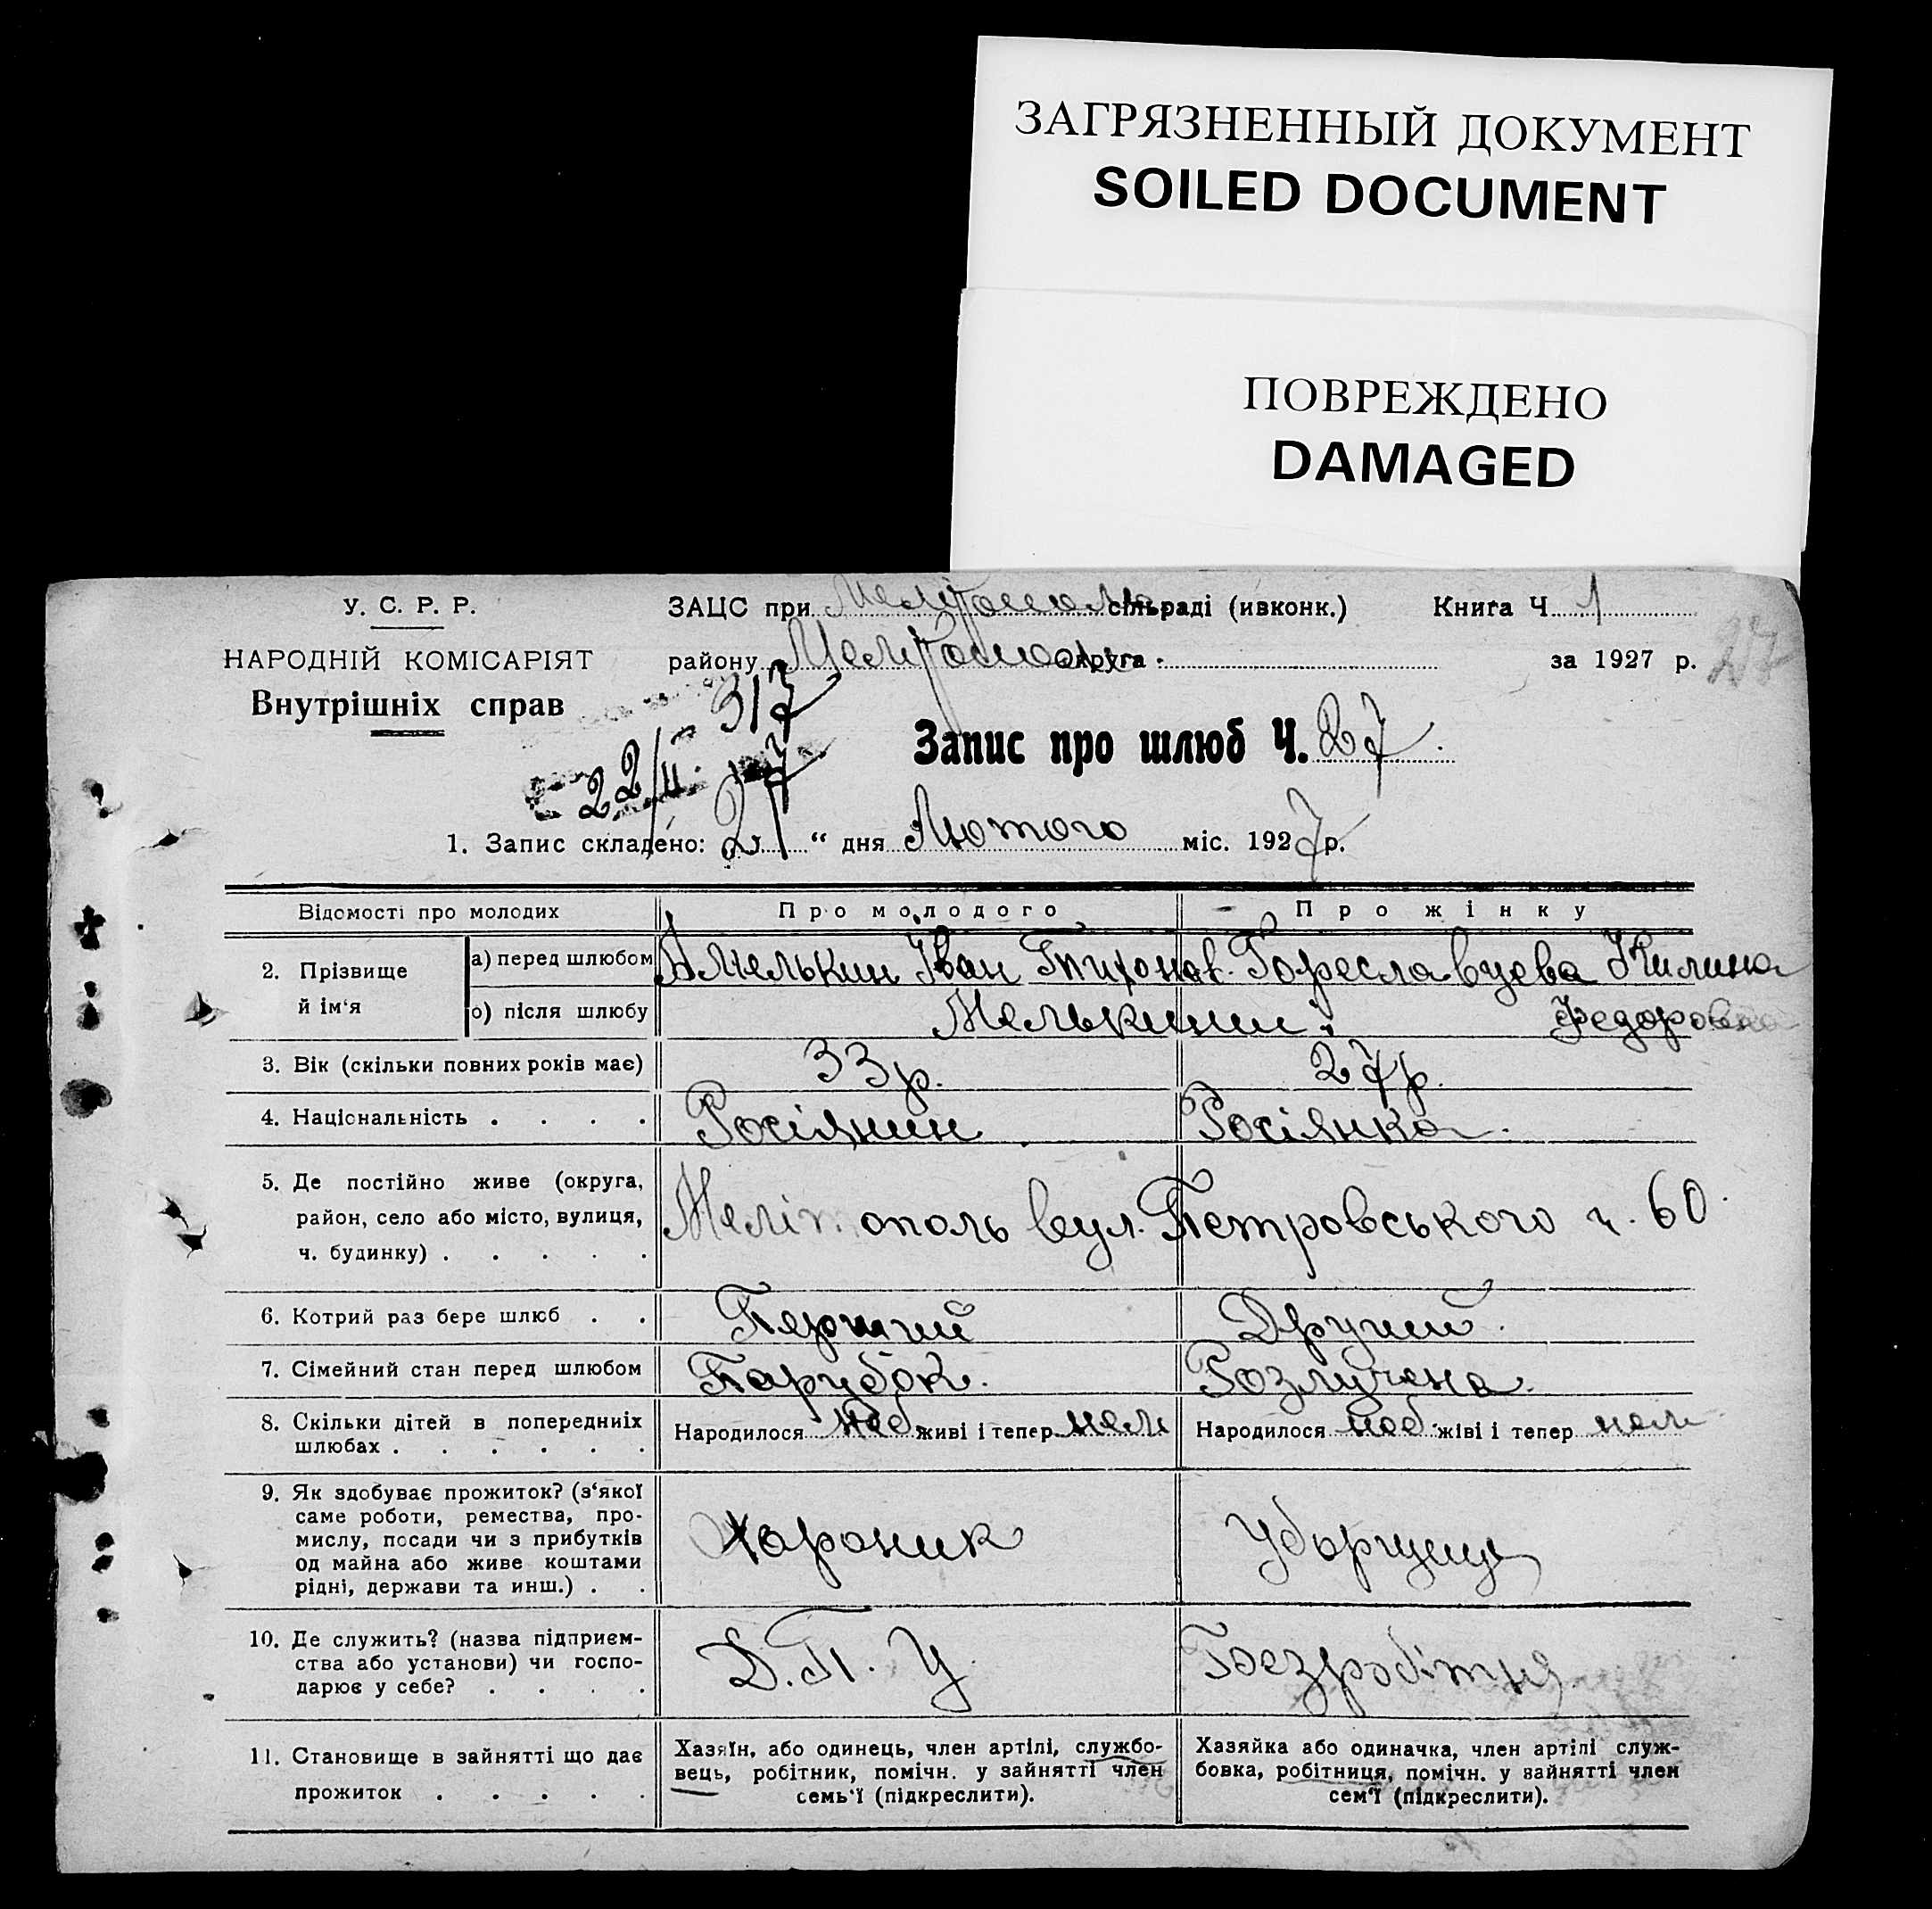 ЗАГРЯЗНЕННЫЙ ДОКУМЕНТ
SOILED DOCUMENT
ПОВРЕЖДЕНО
DAMAGED
У. С. Р. Р.
НАРОДНІЙ КОМІСАРІЯТ
Внутрішніх справ
ЗАЦС при Мелітополь сільраді (ивконк.) Книга Ч 1
району Мелітополь округа за 1927 р. 27
317
22/II 27
Запис про шлюб Ч. 27.
1. Запис складено: 21 “ дня Лютого міс. 1927 р.
Відомості про молодих Про молодого Про жінку
2. Прізвище й ім‘я
а) перед шлюбом Мелькин Іван Тихонов. Гореславцева Килина Федоровна
о) після шлюбу Мелькини
3. Вік (скільки повних років має) 33 р. 27 р.
4. Національність . . . . Росіянин Росіянка.
5. Де постійно живе (округа,
район, село або місто, вулиця,
ч. будинку) . . . . .
Мелітополь вул. Петровського ч. 60
6. Котрий раз бере шлюб . . Перший Другий.
7. Сімейний стан перед шлюбом Парубок. Розлучена.
8. Скільки дітей в попередниіх
шлюбах . . . . . .
Народилося живі і тепер нем Народилося жіві і тепер нем
9. Як здобуває прожиток? (з‘якої
саме роботи, ремества, про-
мислу, посади чи з прибутків
од майна або живе коштами
рідні, держави та инш.) . .
Хороник Уборщиця
10. Де служить? (назва підприєм-
ства або установи) чи госпо-
дарює у себе? . . . .
Д. П. У. Безробітня
11. Становище в зайнятті що дає
прожиток . . . . .
Хазяїн, або одинець, член артілі, службо-
вець, робітник, помічн. у зайнятті член
семь‘ї (підкреслити).
Хазяйка або одиначка, член артілі служ-
бовка, робітниця, помічн. у зайнятті член
сем‘ї (підкреслити).